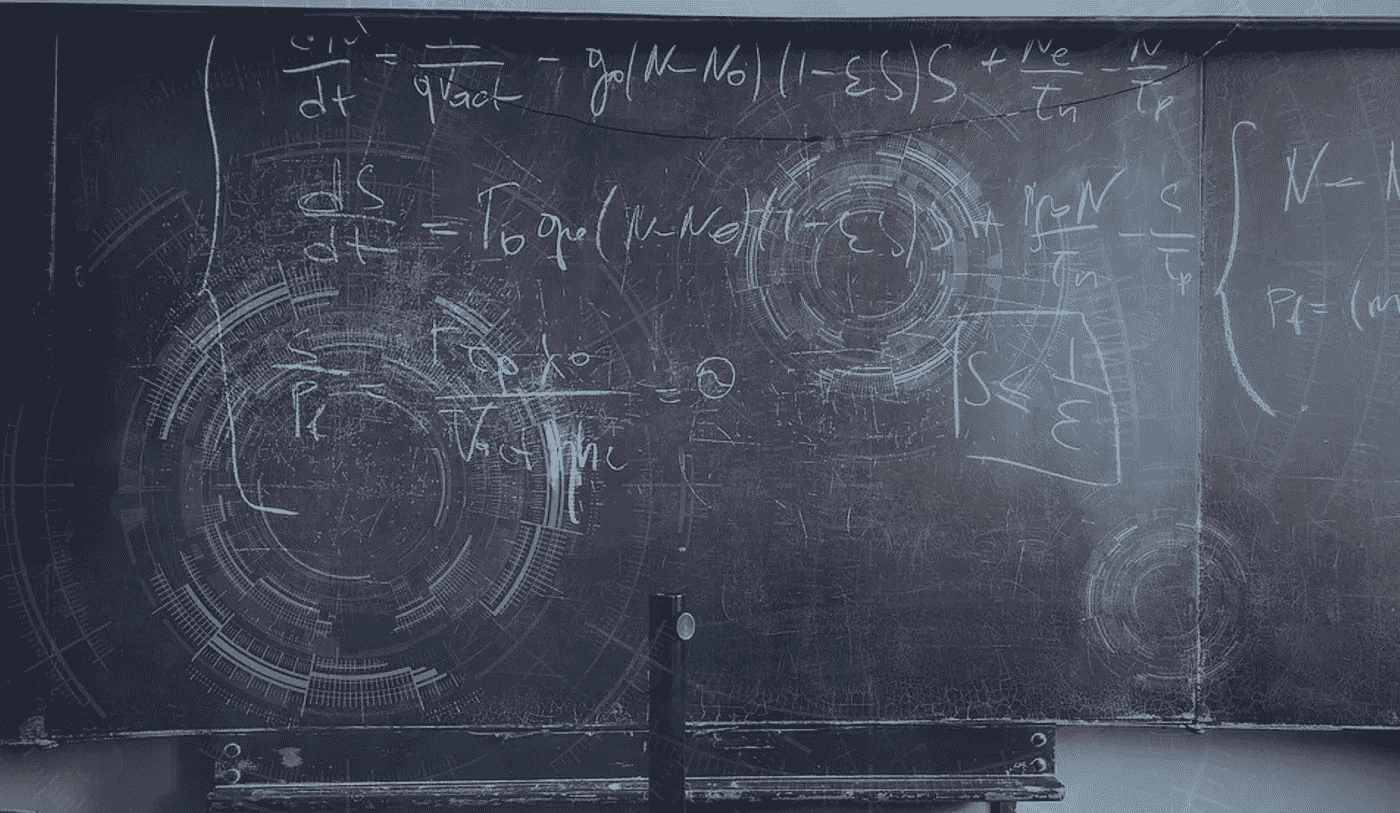 dN/dt = I/qVact - g0(N-N0)(1-εS)S + Ne/τn - N/τp
dS/dt = Γ0 g0(N-N0)(1-εS)S + N/τn - S/τp
S/Pf = Γτpλ0/Vact ηhc = ϑ
S ≤ 1/ε
N -
Pf = (m